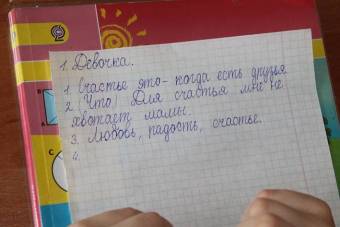 1. Девочка.
1. Счастье это- когда есть друзья
2 (Что) Для счастья мне не
хватает мамы.
3. Любовь, радость, счастье.
4.